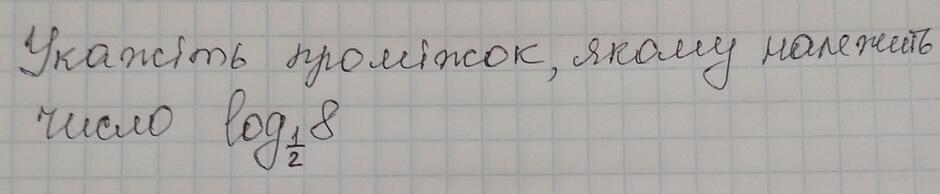 Укажіть проміжок, якому належить
число log_{\frac{1}{2}} 8